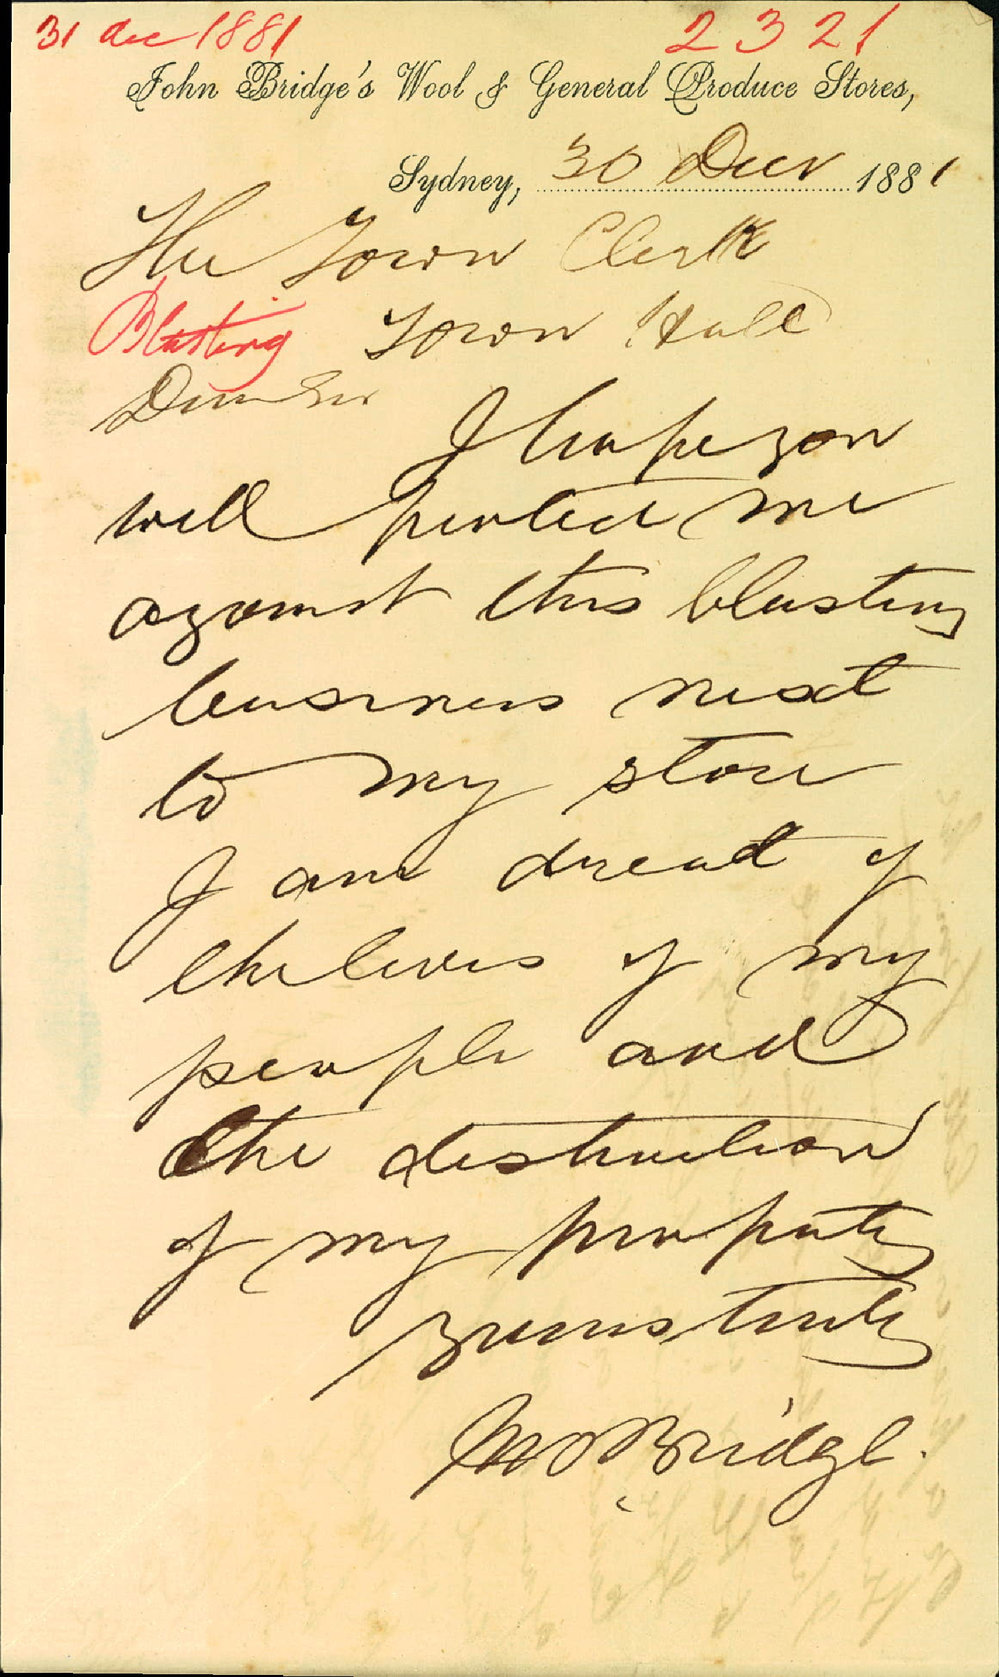 31 dec 1881 2321
John Bridge's Wool & General Produce Stores,
Sydney, 30 Decr 1881
The Town Clerk
Blasting Town Hall
Dear Sir
I hope you
will protect me
against this blasting
business next
to my store
I am in dread of
the lives of my
people and
the destruction
of my property
yours truly
Jno Bridge.